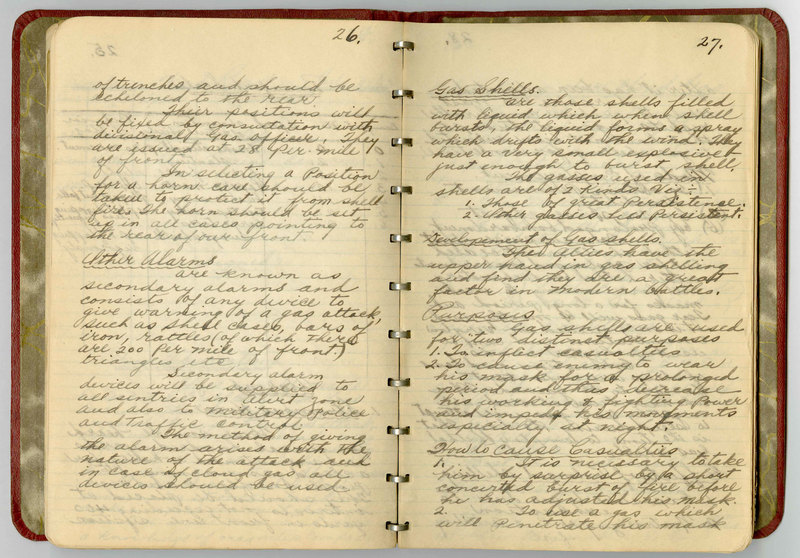 26.
of trenches, and should be
echeloned to the rear.
Their positions will
be fixed by consultation with
divisional Gas officer. They
are issued at 28 Per mile
of front.
In selecting a Position
for a horn care should be
taken to protect it from shell
fire. The horn should be set
up in all cases pointing to
the rear of our front.
Other Alarms
are known as
secondary alarms and
consists of any device to
give warning of a gas attack,
such as shell cases, bars of
iron, rattles (of which there
are 200 Per mile of front)
triangles etc.
Secondary alarm
devices will be supplied to
all sentries in alert zone
and also to Military Police
and traffic control.
The method of giving
the alarm arises with the
nature of the attack and
in case of cloud gas all
devices should be used.
27.
Gas Shells.
are those shells filled
with liquid which when shell
bursts, the liquid forms a spray
which drifts with the wind. They
have a very small explosive
just enough to burst shell.
The gasses used in
shells are of 2 kinds Viz:-
1. Those of great Persistence.
2. Other gasses Less Persistent.
Development of Gas shells.
The Allies have the
upper hand in gas shelling
and find they are a great
factor in Modern battles.
Purposes
Gas shells are used
for two distinct purposes
1. To inflict casualties
2. To cause enemy to wear
his mask for a prolonged
period and thus decrease
his working & fighting Power
and impede his movements
especially at night.
How to cause Casualties
1. It is necessary to take
him by surprise by a short
concerted burst of fire before
he has adjusted his mask.
2. To use a gas which
will penetrate his mask